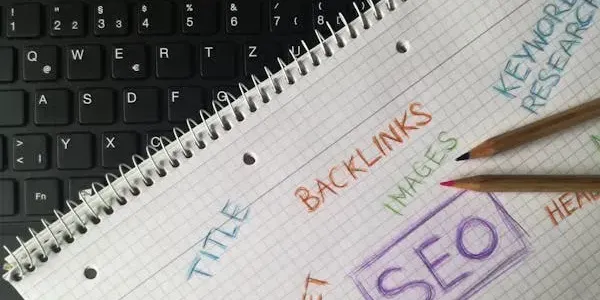 1 2 3 4 5 6 7 8
Q @ W E € R T Z
A S D F G
> < | Y X C
Fn
KEYWORD
RESEARCH
BACKLINKS
IMAGES
TITLE
SEO